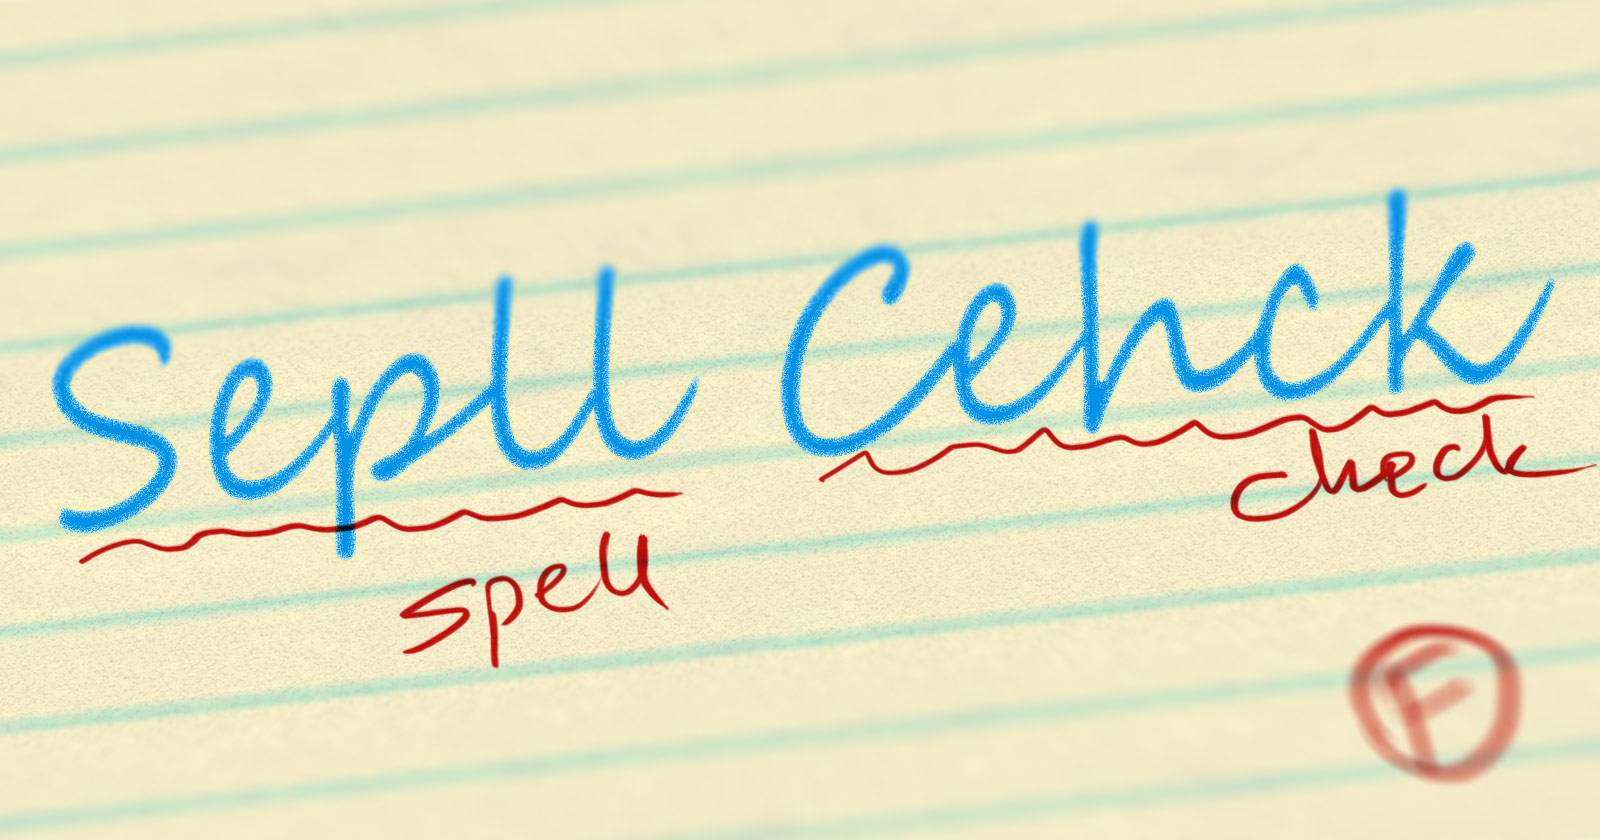 Sepll Cehck
spell check
F